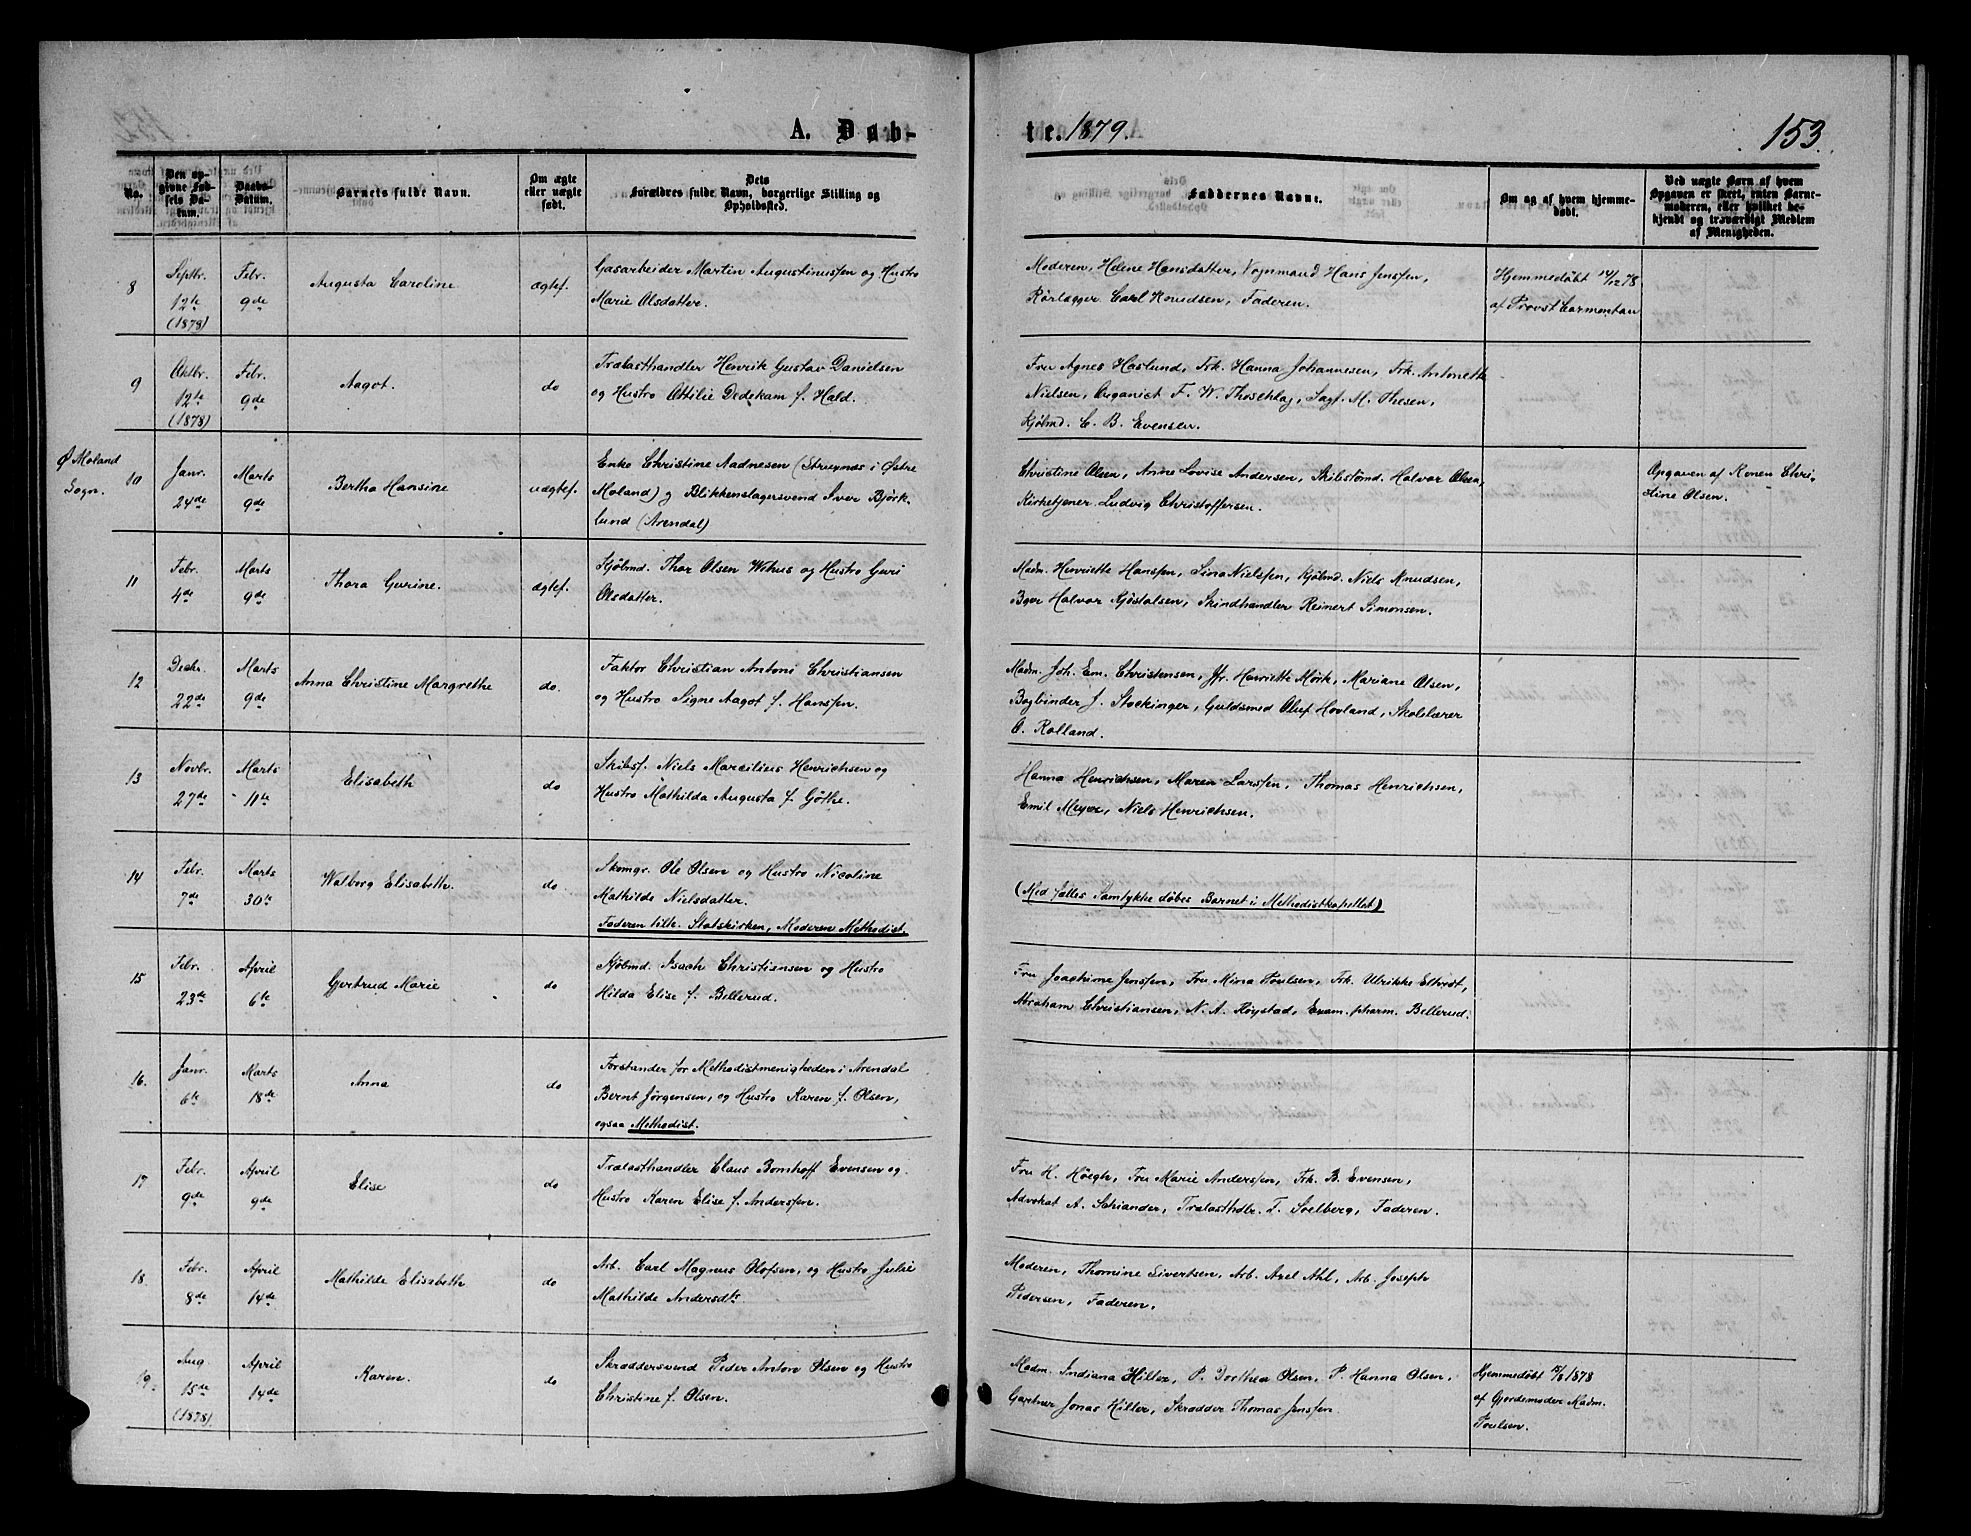 A. Døb-
te. 1879.
153.
No.
Den op-
givne Fød-
sels Da-
tum.
Daabs-
Datum.
Barnets fulde Navn.
Om ægte
eller uægte
født.
Dets
Forældres fulde Navn, borgerlige Stilling og
Opholdssted.
Faddernes Navne.
Om og af hvem hjemme-
døbt.
Ved uægte Børn af hvem
Opgaven er skeet, enten Barne-
moderen, eller hvilket be-
kjendt og troværdigt Medlem
af Menigheden.
8
Septbr.
12te
(1878)
Febr.
9de
Augusta Caroline
ægtef.
Gasarbeider Martin Augustinussen og Hustro
Marie Olsdatter.
Moderen, Helene Hansdatter, Vognmand Hans Jenssen,
Rørlægger Carl Knudsen, Faderen.
Hjemmedøbt 14/12 78
af Provst Carmontau
9
Oktbr.
12te
(1878)
Febr.
9de
Aagot.
do
Trælasthandler Henrik Gustav Danielsen
og Hustro Ottilie Dedekam f. Hald.
Fru Agnes Haslund, Frk. Hanna Johannesen, Frk. Antonette
Nielsen, Organist F. W. Thoschlag, Sagf. M. Thesen,
Kjøbmd. C. B. Evensen.
Ø Moland
Sogn.
10
Janr.
24de
Marts
9de
Bertha Hansine
uægtef.
Enke Christine Aadnesen (Strøynæs i Østre
Moland) og Blikkenslagersvend Iver Bjørk-
lund (Arendal)
Christine Olsen, Anne Lovise Andersen, Skibstømd. Halvor Olsen,
Kirketjener Ludvig Christoffersen.
Opgaven af Konen Chri-
stine Olsen.
11
Febr.
4de
Marts
9de
Thora Gurine.
ægtef.
Kjøbmd. Thor Olsen Wehus og Hustro Guri
Olsdatter.
Madm. Henriette Hanssen, Lina Nielssen, Kjøbmd. Niels Knudsen,
Bgør Halvor Kjøstolsen, Skindhandler Reinert Simonsen.
12
Decbr.
22de
Marts
9de
Anna Christine Margrethe
do.
Faktor Christian Antoni Christiansen
og Hustro Signe Aagot f. Hanssen.
Madm. Joh. Em. Christensen, Jfr. Henriette Mørk, Mariane Olsen,
Bogbinder J. Stockinger, Guldsmed Oluf Hovland, Skolelærer
O. Rolland.
13
Novbr.
27de
Marts
11te
Elisabeth
do
Skibsf. Niels Marcilius Henrichsen og
Hustro Mathilda Augusta f. Gøthe.
Hanna Henrichsen, Maren Larssen, Thomas Henrichsen,
Emil Meyer, Niels Henrichsen.
14
Febr.
7de
Marts
30te
Walborg Elisabeth.
do
Skomgr. Ole Olsen og Hustro Nicoline
Mathilde Nielsdatter.
Faderen tilh. Statskirken, Moderen Methodist.
(Med fælles Samtykke døbes Barnet i Methodistkapellet)
15
Febr.
23de
April
6te
Gjertrud Marie
do
Kjøbmd. Isach Christiansen og Hustro
Hilda Elise f. Bellerud.
Fru Joachime Jenssen, Fru Mina Poulsen, Frk. Ulrikke Eltvedt,
Abraham Christiansen, N. A. Røystad, Exam. pharm. Bellerud.
16.
Janr.
6te
Marts
18de
Anna
do
Forstander for Methodistmenigheden i Arendal
Bernt Jørgensen, og Hustro Karen f. Olsen,
ogsaa Methodist.
17
Febr.
9de
April
9de
Elise
do
Trælasthandler Claus Bomhoff Evensen og
Hustro Karen Elise f. Anderssen.
Fru H. Høegh, Fru Marie Anderssen, Frk. B. Evensen,
Advokat A. Schiander, Trælasthdlr. F. Soelberg, Faderen.
18.
Febr.
8de
April
14de
Mathilde Elisabeth
do
Arb. Carl Magnus Olofsen, og Hustro Julie
Mathilde Andersdtr.
Moderen, Thomine Sivertsen, Arb. Axel Ahl, Arb. Joseph
Pedersen, Faderen.
19.
Aug.
15de
(1878).
April
14de
Karen.
do
Skræddersvend Peder Anton Olsen og Hustro
Christine f. Olsen.
Madm. Indiana Hiller, P. Dorthea Olsen, P. Hanna Olsen,
Gartner Jonas Hiller, Skrædder Thomas Jenssen.
Hjemmedøbt 15/8 1878
af Gjordemoder Madm.
Poulsen.